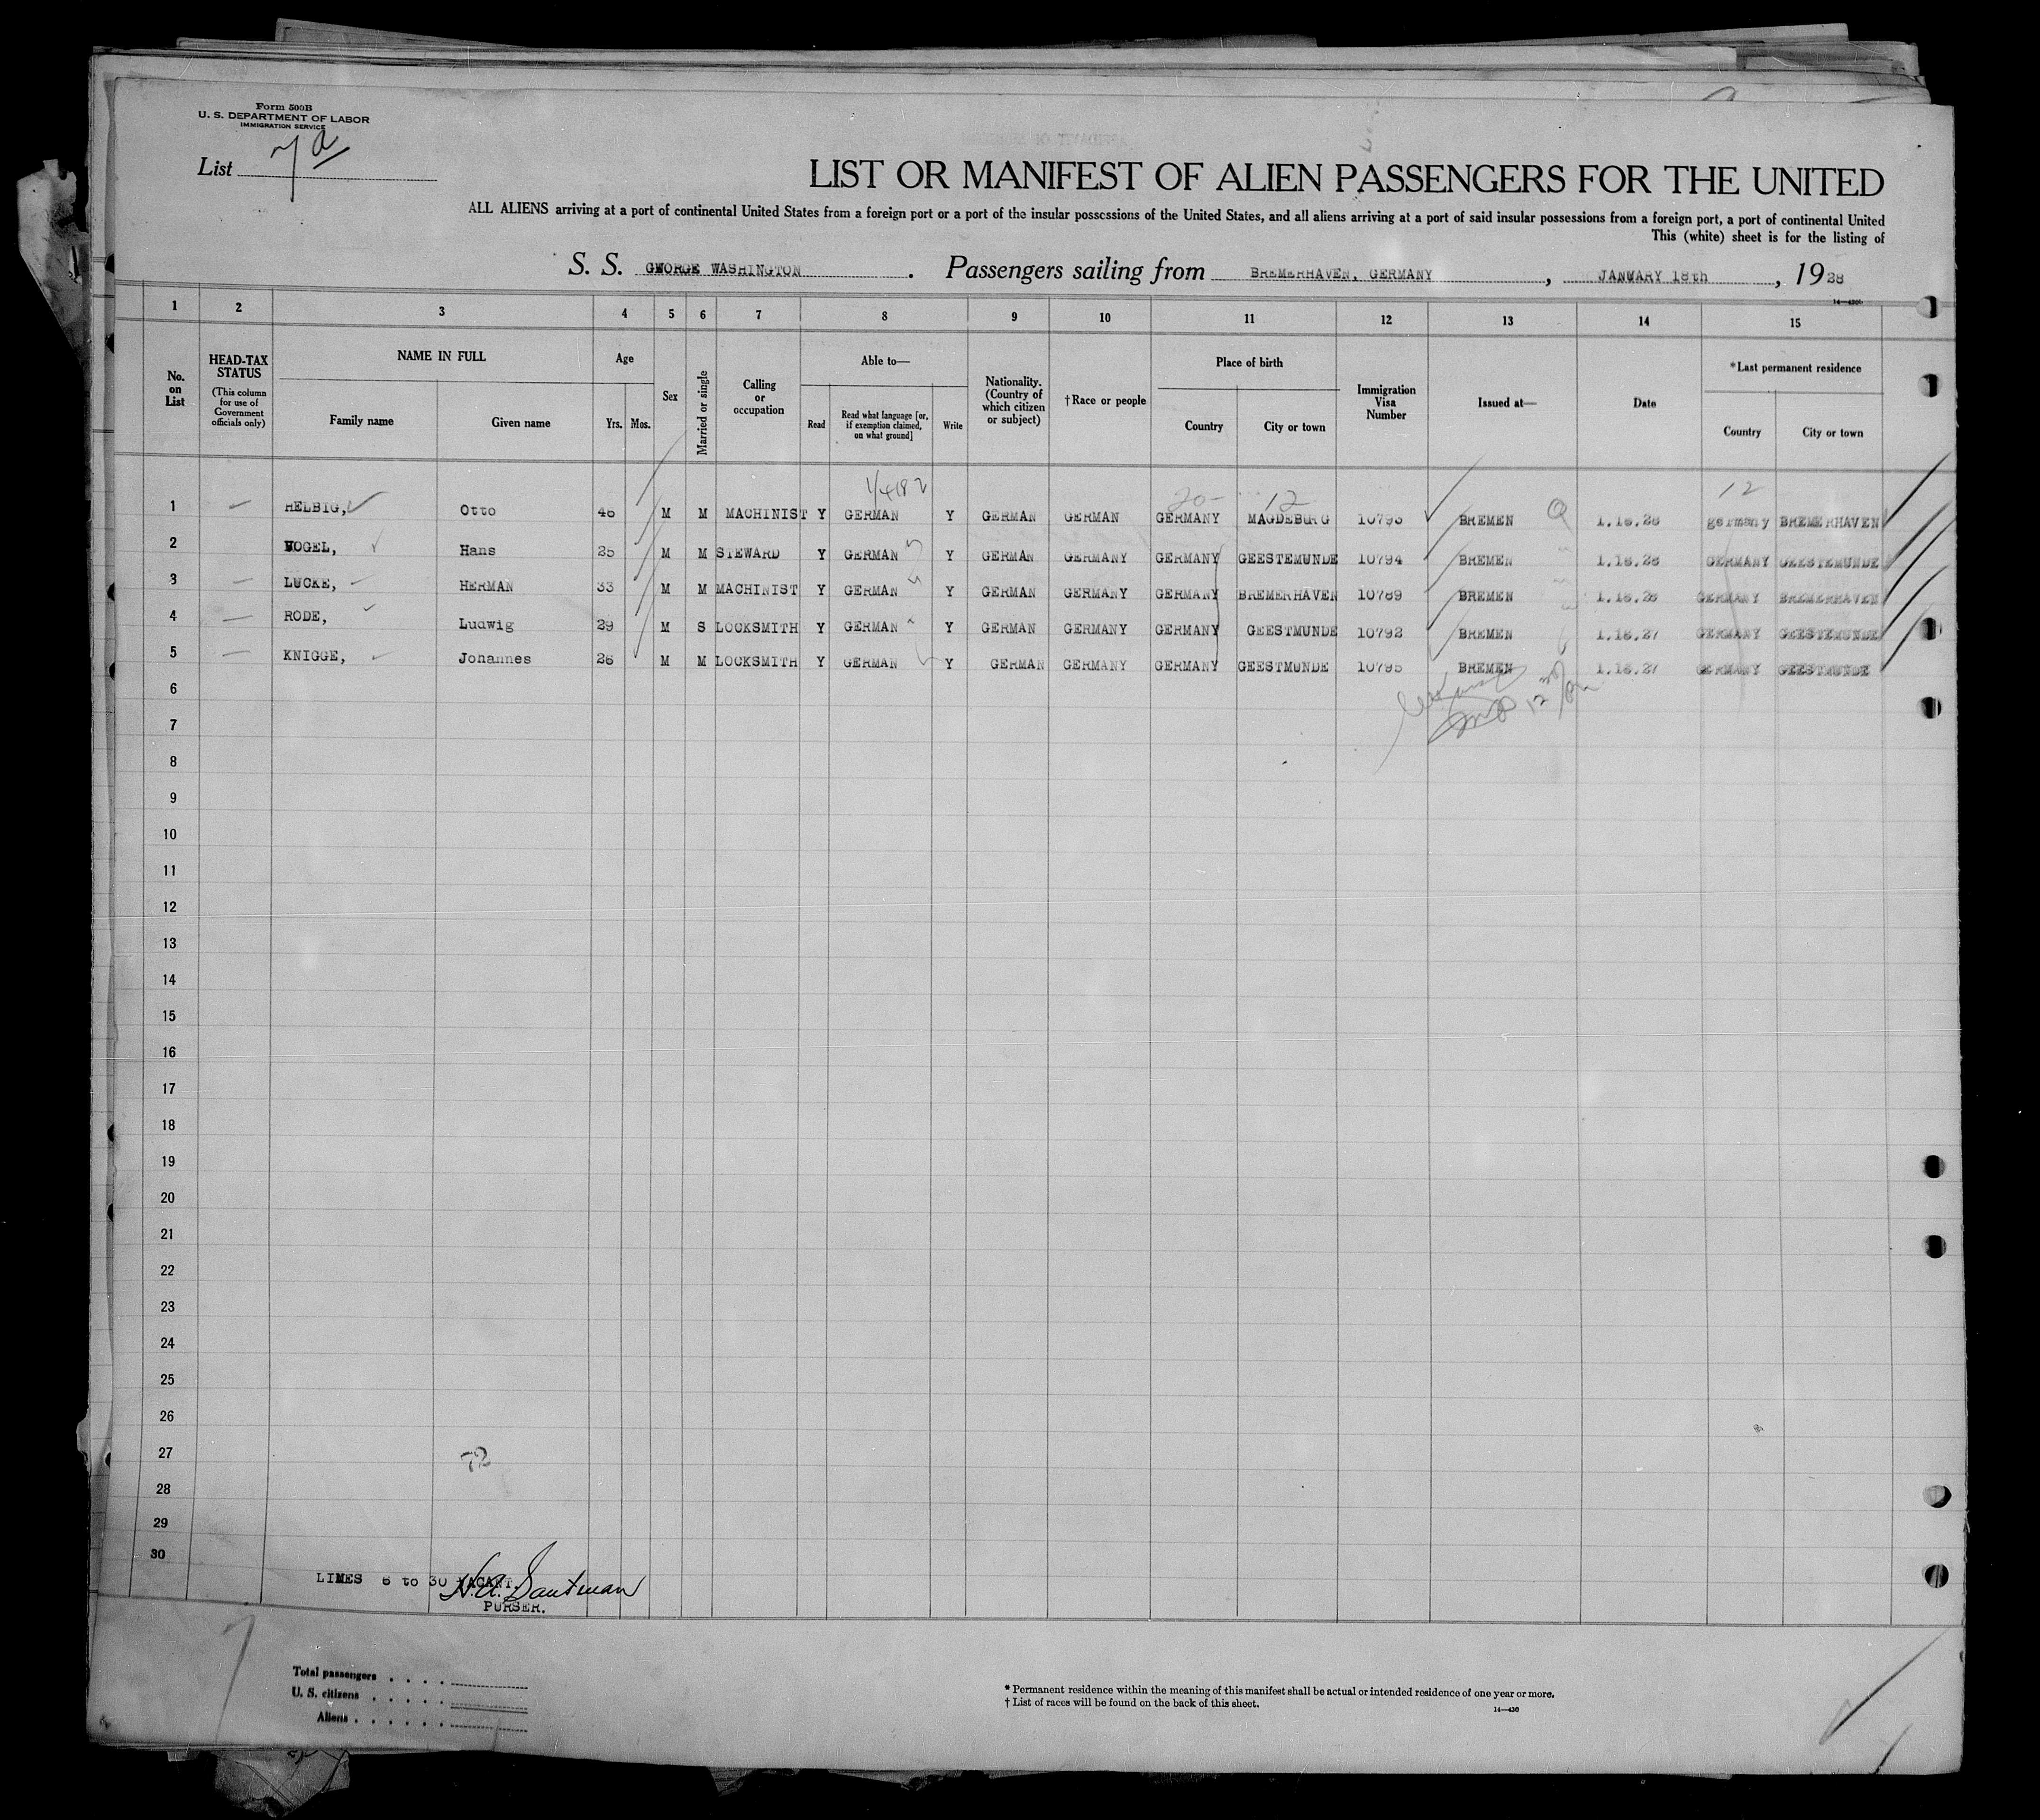 Form 500B
U. S. DEPARTMENT OF LABOR
IMMIGRATION SERVICE
List 7a
LIST OR MANIFEST OF ALIEN PASSENGERS FOR THE UNITED
ALL ALIENS arriving at a port of continental United States from a foreign port or a port of the insular possessions of the United States, and all aliens arriving at a port of said insular possessions from a foreign port, a port of continental United
This (white) sheet is for the listing of
S. S. GEORGE WASHINGTON. Passengers sailing from BREMERHAVEN, GERMANY, JANUARY 18th, 1928
1 2 3 4 5 6 7 8 9 10 11 12 13 14 15
No. on List
HEAD-TAX STATUS (This column for use of Government officials only)
NAME IN FULL Family name Given name
Age Yrs. Mos.
Sex
Married or single
Calling or occupation
Able to— Read Read what language [or, if exemption claimed, on what ground] Write
Nationality. (Country of which citizen or subject)
†Race or people
Place of birth Country City or town
Immigration Visa Number
Issued at—
Date
*Last permanent residence Country City or town
20- 12 12
1 HELBIG, Otto 46 M M MACHINIST Y GERMAN Y GERMAN GERMAN GERMANY MAGDEBURG 10793 BREMEN 1.18.28 germany BREMERHAVEN
2 VOGEL, Hans 25 M M STEWARD Y GERMAN Y GERMAN GERMANY GERMANY GEESTEMUNDE 10794 BREMEN 1.18.28 GERMANY GEESTEMUNDE
3 LUCKE, HERMAN 33 M M MACHINIST Y GERMAN Y GERMAN GERMANY GERMANY BREMERHAVEN 10789 BREMEN 1.18.28 GERMANY BREMERHAVEN
4 RODE, Ludwig 29 M S LOCKSMITH Y GERMAN Y GERMAN GERMANY GERMANY GEESTMUNDE 10792 BREMEN 1.18.27 GERMANY GEESTEMUNDE
5 KNIGGE, Johannes 26 M M LOCKSMITH Y GERMAN Y GERMAN GERMANY GERMANY GEESTMUNDE 10795 BREMEN 1.18.27 GERMANY GEESTMUNDE
6
7
8
9
10
11
12
13
14
15
16
17
18
19
20
21
22
23
24
25
26
27
28
29
30
LINES 6 to 30 VACANT.
PURSER.
Total passengers
U. S. citizens
Aliens
* Permanent residence within the meaning of this manifest shall be actual or intended residence of one year or more.
† List of races will be found on the back of this sheet.
14—430